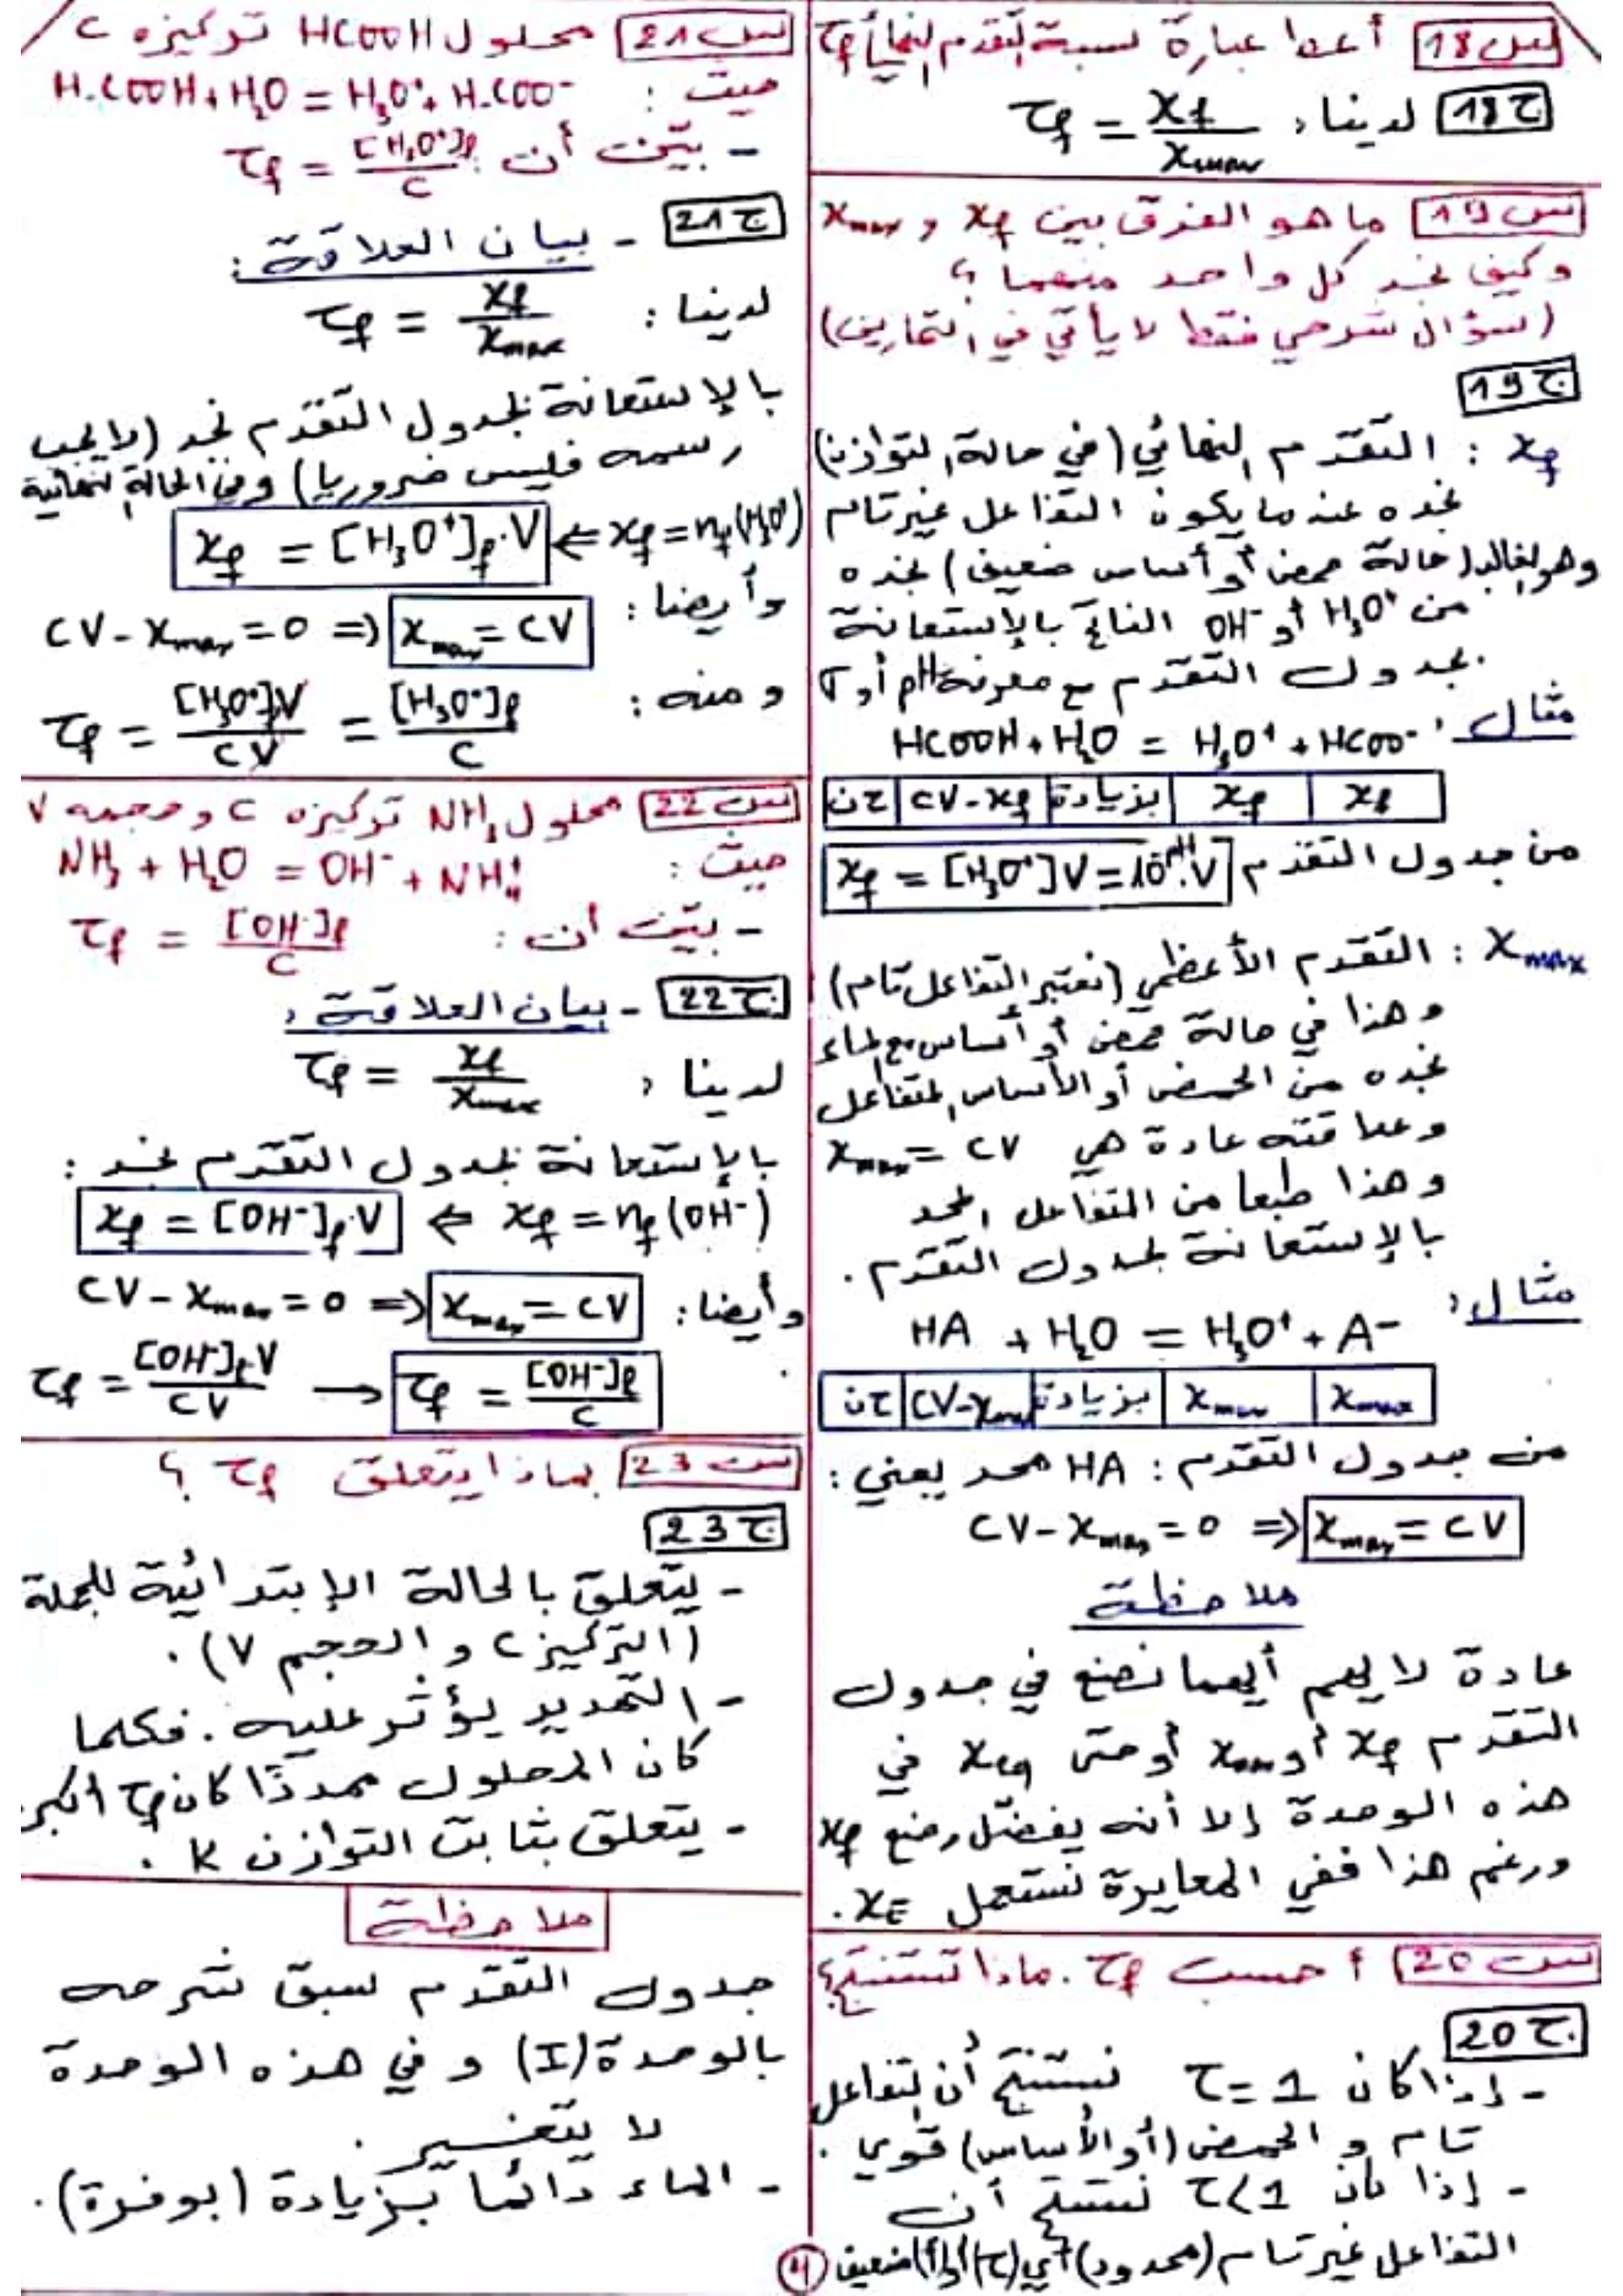 س 18 أعط عبارة نسبة التقدم النهائي τf
ج 18 لدينا: τf = xf / xmax
س 19 ما هو الفرق بين xf و xmax
وكيف نجد كل واحد منهما ؟
(سؤال شرحي فقط لا يأتي في التمارين)
ج 19
xf : التقدم النهائي (في حالة التوازن)
نجده عندما يكون التفاعل غير تام
وهو الغالب (حالة حمض أو أساس ضعيف) نجده
من H3O+ أو OH- الناتج بالإستعانة
بجدول التقدم مع معرفة pH أو σ
مثال: HCOOH + H2O = H3O+ + HCOO-
ح ن | CV - xf | بزيادة | xf | xf
من جدول التقدم xf = [H3O+]V = 10^-pH.V
xmax : التقدم الأعظمي (نعتبر التفاعل تام)
وهذا في حالة حمض أو أساس مع الماء
نجده من الحمض أو الأساس المتفاعل
وعلاقته عادة هي xmax = CV
وهذا طبعا من المتفاعل المحد
بالإستعانة بجدول التقدم.
مثال:
HA + H2O = H3O+ + A-
ح ن | CV - xmax | بزيادة | xmax | xmax
من جدول التقدم: HA محد يعني:
CV - xmax = 0 ⇒ xmax = CV
ملاحظة
عادة لا يهم أيهما نضع في جدول
التقدم xf أو xmax أو حتى xéq في
هذه الوحدة إلا أنه يفضّل وضع xf
ورغم هذا ففي المعايرة نستعمل xE.
س 20 أحسب τf. ماذا تستنتج؟
ج 20
- إذا كان τ = 1 نستنتج أن التفاعل
تام و الحمض (أو الأساس) قوي.
- إذا كان τ < 1 نستنتج أن
التفاعل غير تام (محدود) أي (ح) أو (أ) ضعيف
س 21 محلول HCOOH تركيزه C
حيث: H-COOH + H2O = H3O+ + H-COO-
- بيّن أن: τf = [H3O+]f / C
ج 21 - بيان العلاقة:
لدينا: τf = xf / xmax
بالإستعانة بجدول التقدم نجد (لا يجب
رسمه فليس ضروريا) وفي الحالة النهائية
xf = nf(H3O+) ⇒ xf = [H3O+]f.V
وأيضا: CV - xmax = 0 ⇒ xmax = CV
ومنه: τf = [H3O+]f V / CV = [H3O+]f / C
س 22 محلول NH3 تركيزه C وحجمه V
حيث: NH3 + H2O = OH- + NH4+
- بيّن أن: τf = [OH-]f / C
ج 22 - بيان العلاقة:
لدينا: τf = xf / xmax
بالإستعانة بجدول التقدم نجد:
xf = nf(OH-) ⇒ xf = [OH-]f.V
وأيضا: CV - xmax = 0 ⇒ xmax = CV
τf = [OH-]f V / CV → τf = [OH-]f / C
س 23 بماذا يتعلق τf ؟
ج 23
- يتعلق بالحالة الإبتدائية للجملة
(التركيز C و الحجم V).
- التمديد يؤثر عليه. فكلما
كان المحلول ممددًا كان τf أكبر
- يتعلق بثابت التوازن K.
ملاحظة
جدول التقدم سبق شرحه
بالوحدة (I) و في هذه الوحدة
لا يتغير.
- الماء دائما بزيادة (بوفرة).
4